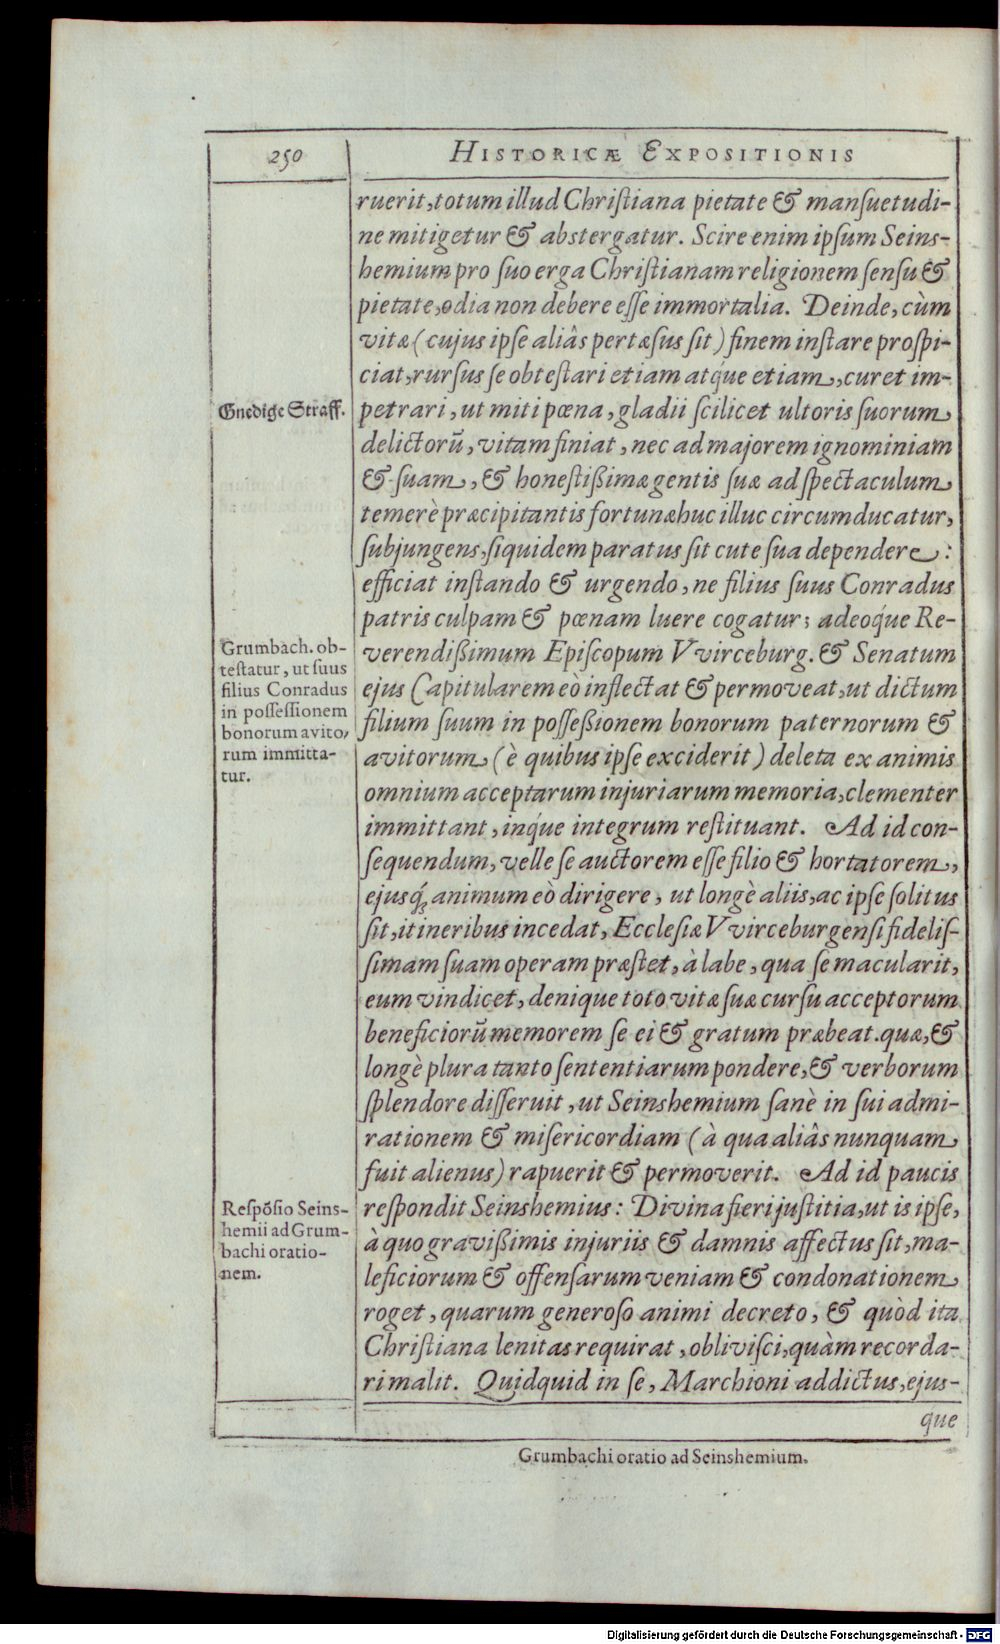 250
HISTORICÆ EXPOSITIONIS
ruerit, totum illud Christiana pietate & mansuetudi-
ne mitigetur & abstergatur. Scire enim ipsum Seins-
hemium pro suo erga Christianam religionem sensu &
pietate, odia non debere esse immortalia. Deinde, cùm
vitæ (cujus ipse aliâs pertæsus sit) finem instare prospi-
ciat, rursus se obtestari etiam atq́ue etiam, curet im-
petrari, ut miti pœna, gladii scilicet ultoris suorum
delictorũ, vitam finiat, nec ad majorem ignominiam
& suam, & honestißimæ gentis suæ ad spectaculum
temerè præcipitantis fortunæ huc illuc circumducatur,
subjungens, siquidem paratus sit cute sua dependere:
efficiat instando & urgendo, ne filius suus Conradus
patris culpam & pœnam luere cogatur; adeoq́ue Re-
verendißimum Episcopum VVirceburg. & Senatum
ejus Capitularem eò inflectat & permoveat, ut dictum
filium suum in posseßionem bonorum paternorum &
avitorum (è quibus ipse exciderit) deleta ex animis
omnium acceptarum injuriarum memoria, clementer
immittant, inq́ue integrum restituant. Ad id con-
sequendum, velle se auctorem esse filio & hortatorem,
ejusq́; animum eò dirigere, ut longè aliis, ac ipse solitus
sit, itineribus incedat, Ecclesiæ VVirceburgensi fidelis-
simam suam operam præstet, à labe, qua se macularit,
eum vindicet, denique toto vitæ suæ cursu acceptorum
beneficiorũ memorem se ei & gratum præbeat. quæ, &
longè plura tanto sententiarum pondere, & verborum
splendore disseruit, ut Seinshemium sanè in sui admi-
rationem & misericordiam (à qua aliâs nunquam
fuit alienus) rapuerit & permoverit. Ad id paucis
respondit Seinshemius: Divina fieri justitia, ut is ipse,
à quo gravißimis injuriis & damnis affectus sit, ma-
leficiorum & offensarum veniam & condonationem
roget, quarum generoso animi decreto, & quòd ita
Christiana lenitas requirat, oblivisci, quàm recorda-
ri malit. Quidquid in se, Marchioni addictus, ejus-
que
Gnedige Straff.
Grumbach. ob-
testatur, ut suus
filius Conradus
in possessionem
bonorum avito,
rum immitta-
tur.
Respõsio Seins-
hemii ad Grum-
bachi oratio-
nem.
Grumbachi oratio ad Seinshemium.
Digitalisierung gefördert durch die Deutsche Forschungsgemeinschaft - DFG